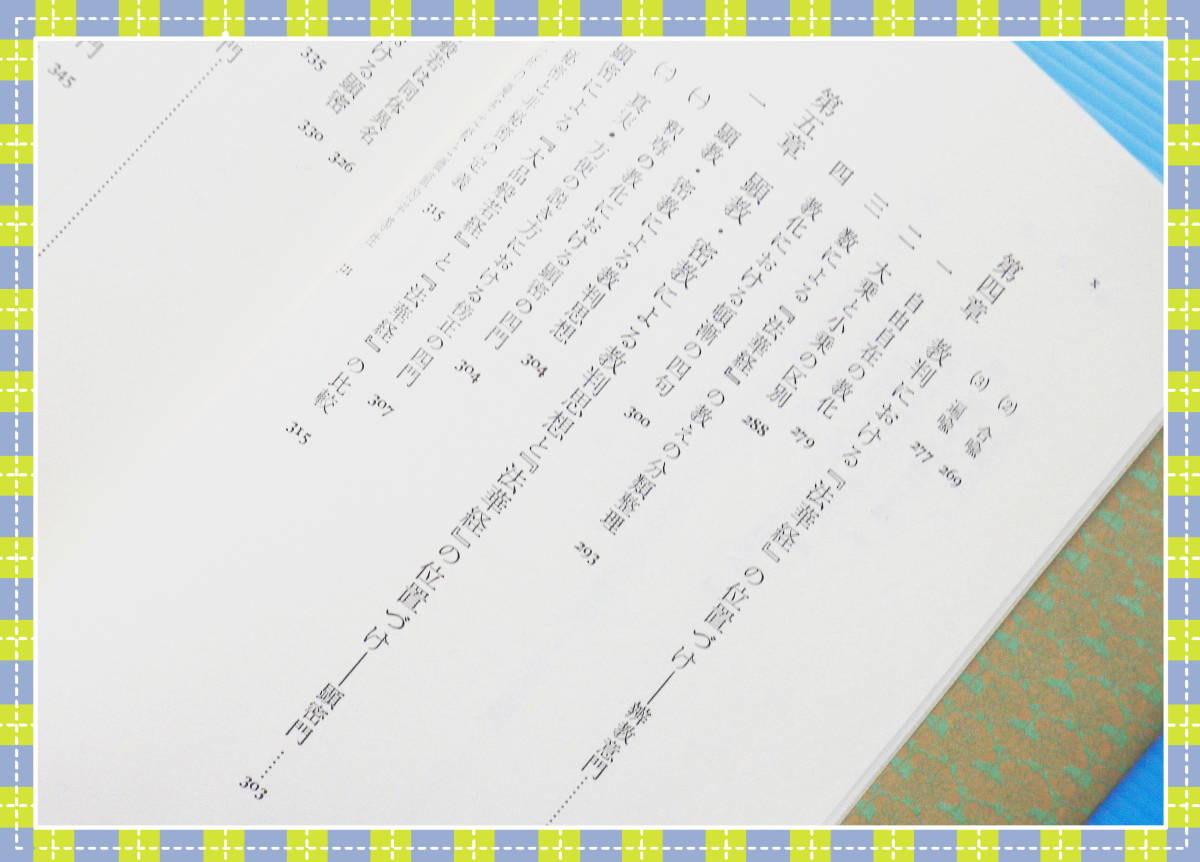 x
(2) 合喩 269
(3) 遮喩 277
第四章 教判における『法華経』の位置づけ――辨教意門……
一 自由自在の教化 279
二 大乗と小乗の区別 288
三 数による『法華経』の教えの分類整理 293
四 教化における頓漸の四句 300
第五章 顕教・密教による教判思想と『法華経』の位置づけ――顕密門…… 303
一 顕教・密教による教判思想 304
(一) 釈尊の教化における顕密の四門 304
(二) 真実・方便の説き方における傍正の四門 307
顕密による『大品般若経』と『法華経』の比較 315
315
般若は同体異名 326
ける顕密 330
335
門
門 345